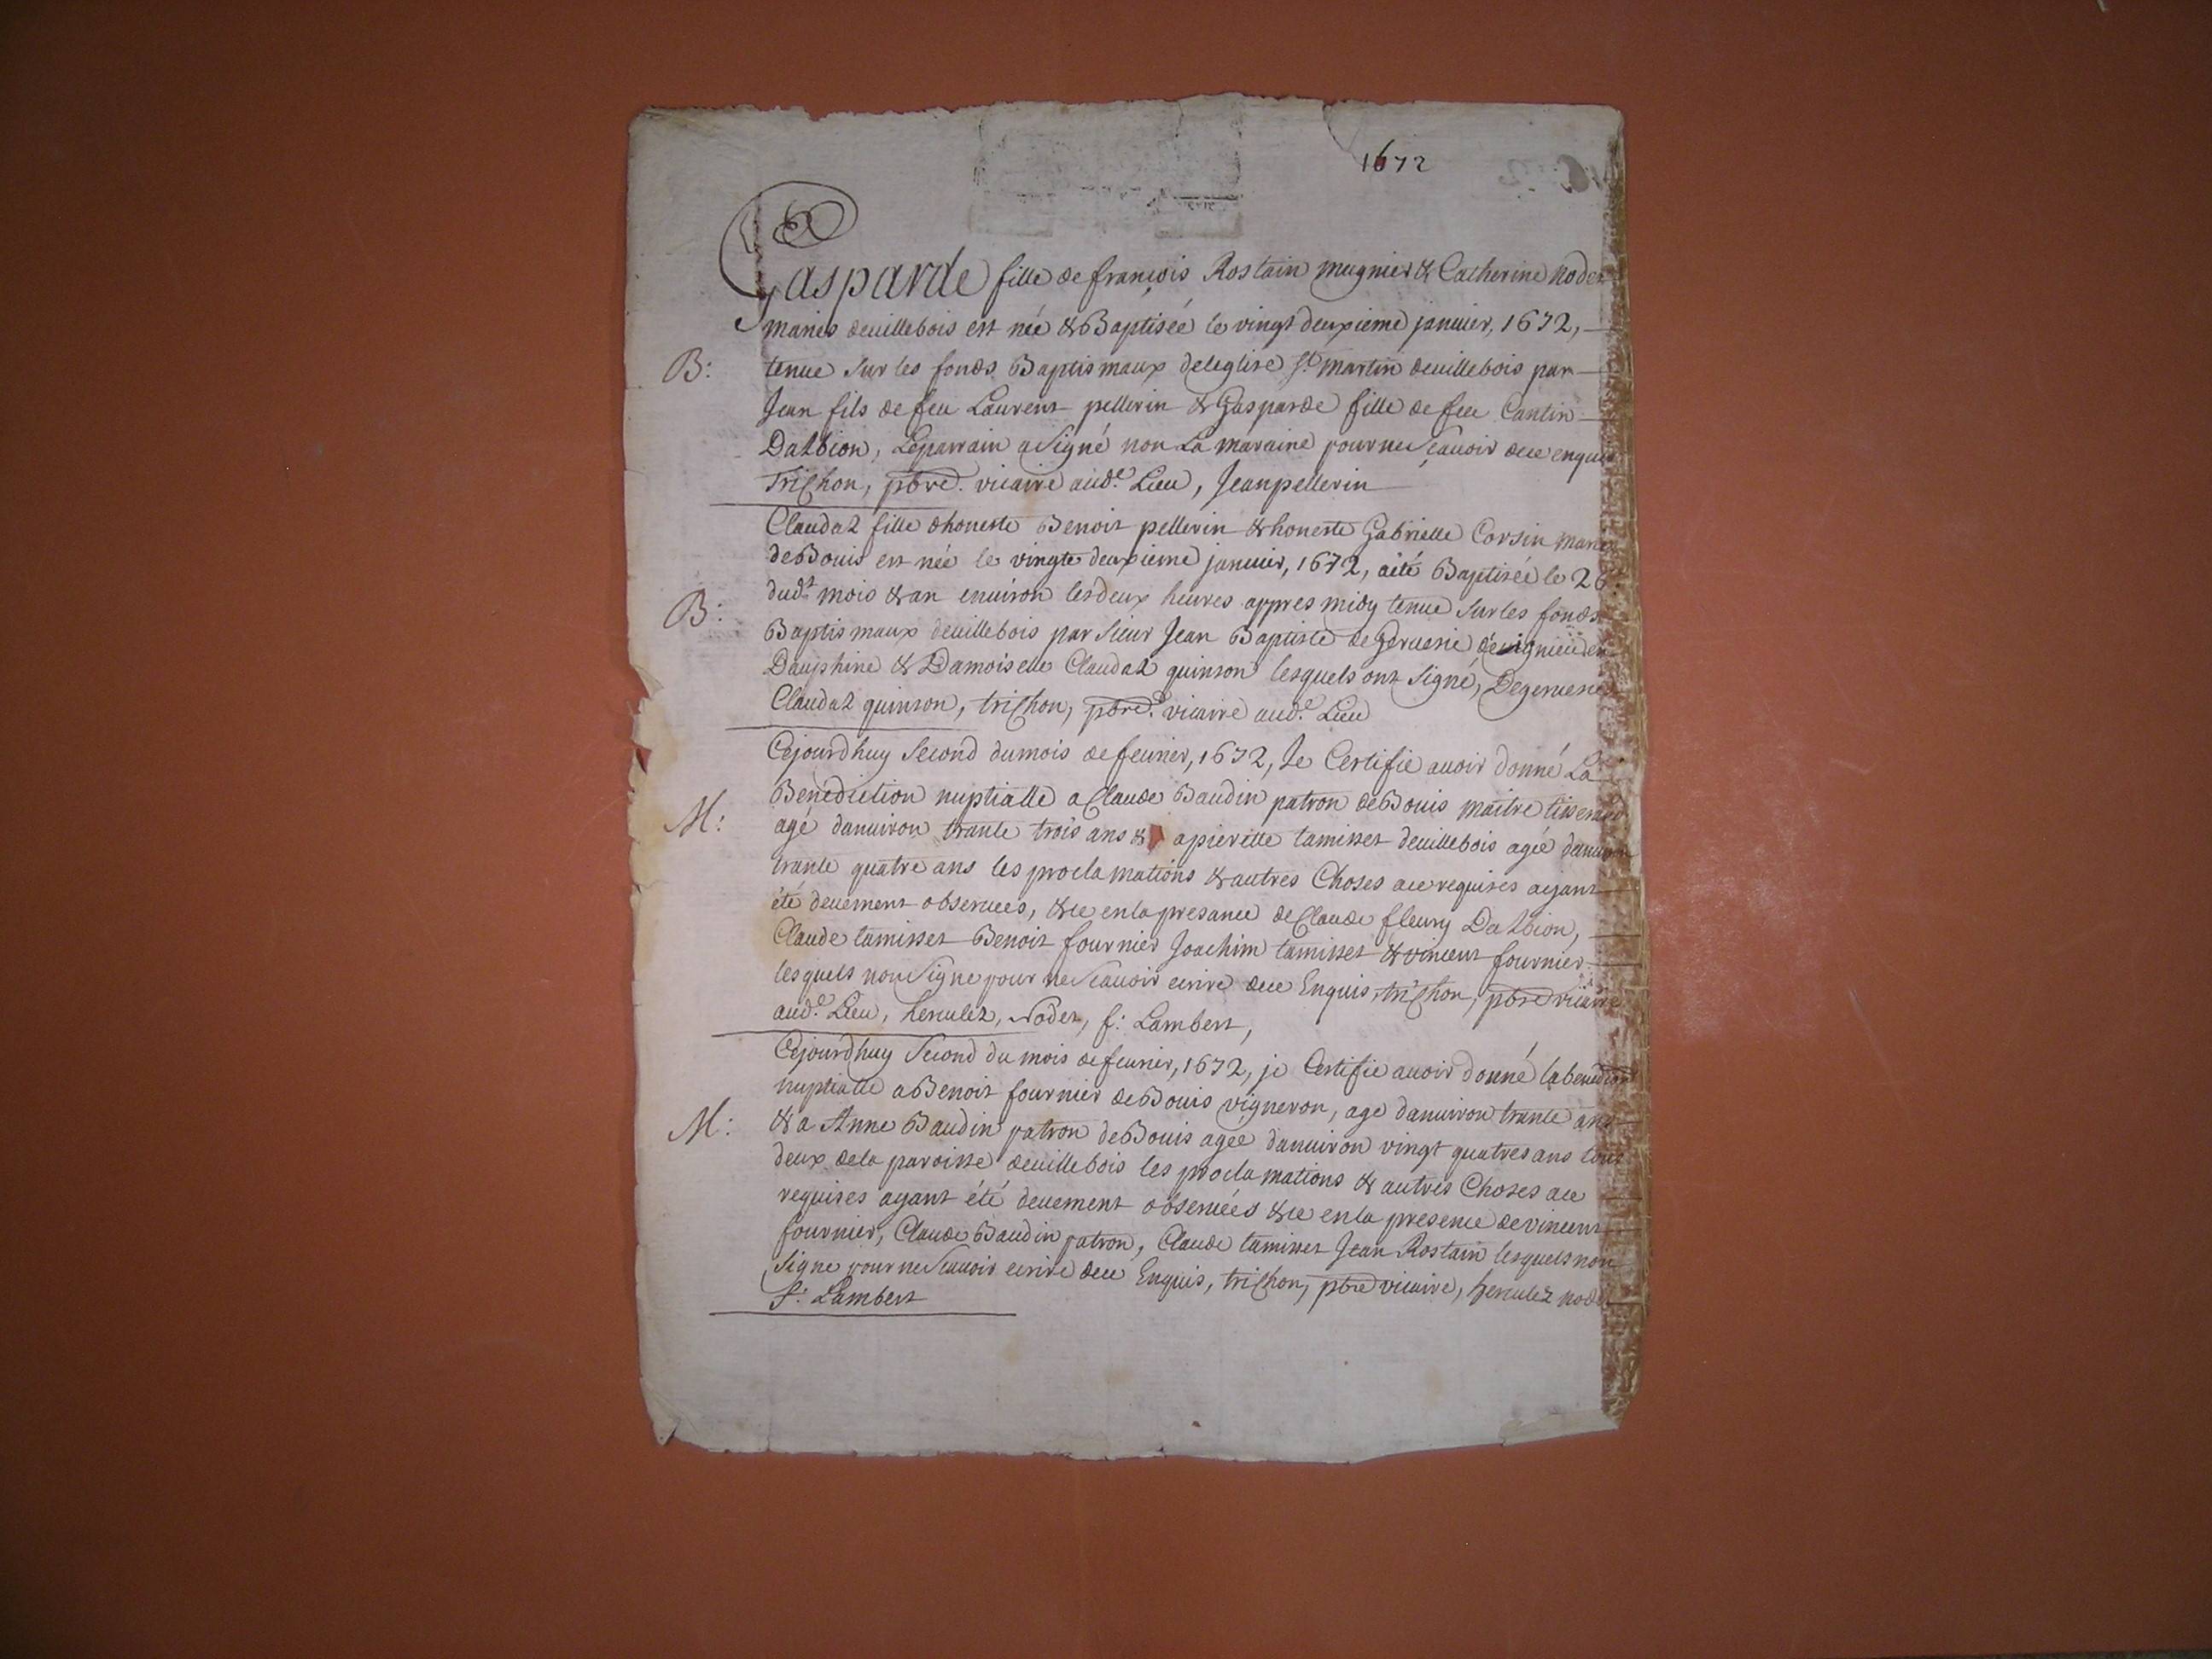 1672
Gasparde fille de françois Rostain mugnier & Catherine nodet
mariés deuillebois est née & Baptisée le vingt deuxieme januier, 1672,
B: tenue sur les fonds Baptismaux deleglise St martin deuillebois par
Jean fils de feu Laurent pellerin & Gasparde fille de feu Cantin
Dalbion, Leparrain a signé non La maraine pour ne sçauoir dece enquis
Trichon, pbre. vicaire aude. Lieu, Jean pellerin
Claudaz fille dhoneste Benoit pellerin & honeste Gabrielle Corsin mariez
deBouis est née le vingte deuxieme januier, 1672, aité Baptisée le 26
B: dudt. mois & an enuiron les deux heures appres midy tenue sur les fonds
Baptismaux deuillebois par sieur Jean Baptiste de Geruesie deuignieu en
Dauphine & Damoiselle Claudaz quinson lesquels ont signé, Degeruesie
Claudaz quinson, trichon, pbre. vicaire aude. Lieu
Cejourdhuy second dumois de feurier, 1672, Je Certifie auoir donné La
Benediction nuptialle a Claude Baudin patron deBouis maitre tisserand
M: agé danuiron trante trois ans & apierette tamisset deuillebois agée danuiron
trante quatre ans les proclamations & autres Choses ace requises ayant
été deuement obseruees, & ce enla presance de Claude fleury Dalbion,
Claude tamisset Benoit fournier Joachim tamisset & vincent fournier
lesquels non signe pour ne scauoir ecrire dece Enquis, trichon, pbre vicaire
aude. Lieu, herculez, Nodet, f: Lambert,
Cejourdhuy second du mois de feurier, 1672, je Certifie auoir donné la benediction
nuptialle a Benoit fournier deBouis vigneron, age danuiron trante ans
M: & a Anne Baudin patron deBouis agée danuiron vingt quatres ans tous
deux dela paroisse deuillebois les proclamations & autres Choses ace
requises ayant été deuement obseruéés & ce enla presence de vincent
fournier, Claude Baudin patron, Claude tamisset Jean Rostain lesquels non
signe pour ne scauoir ecrire dece Enquis, trichon, pbre vicaire, herculez nodet
f: Lambert